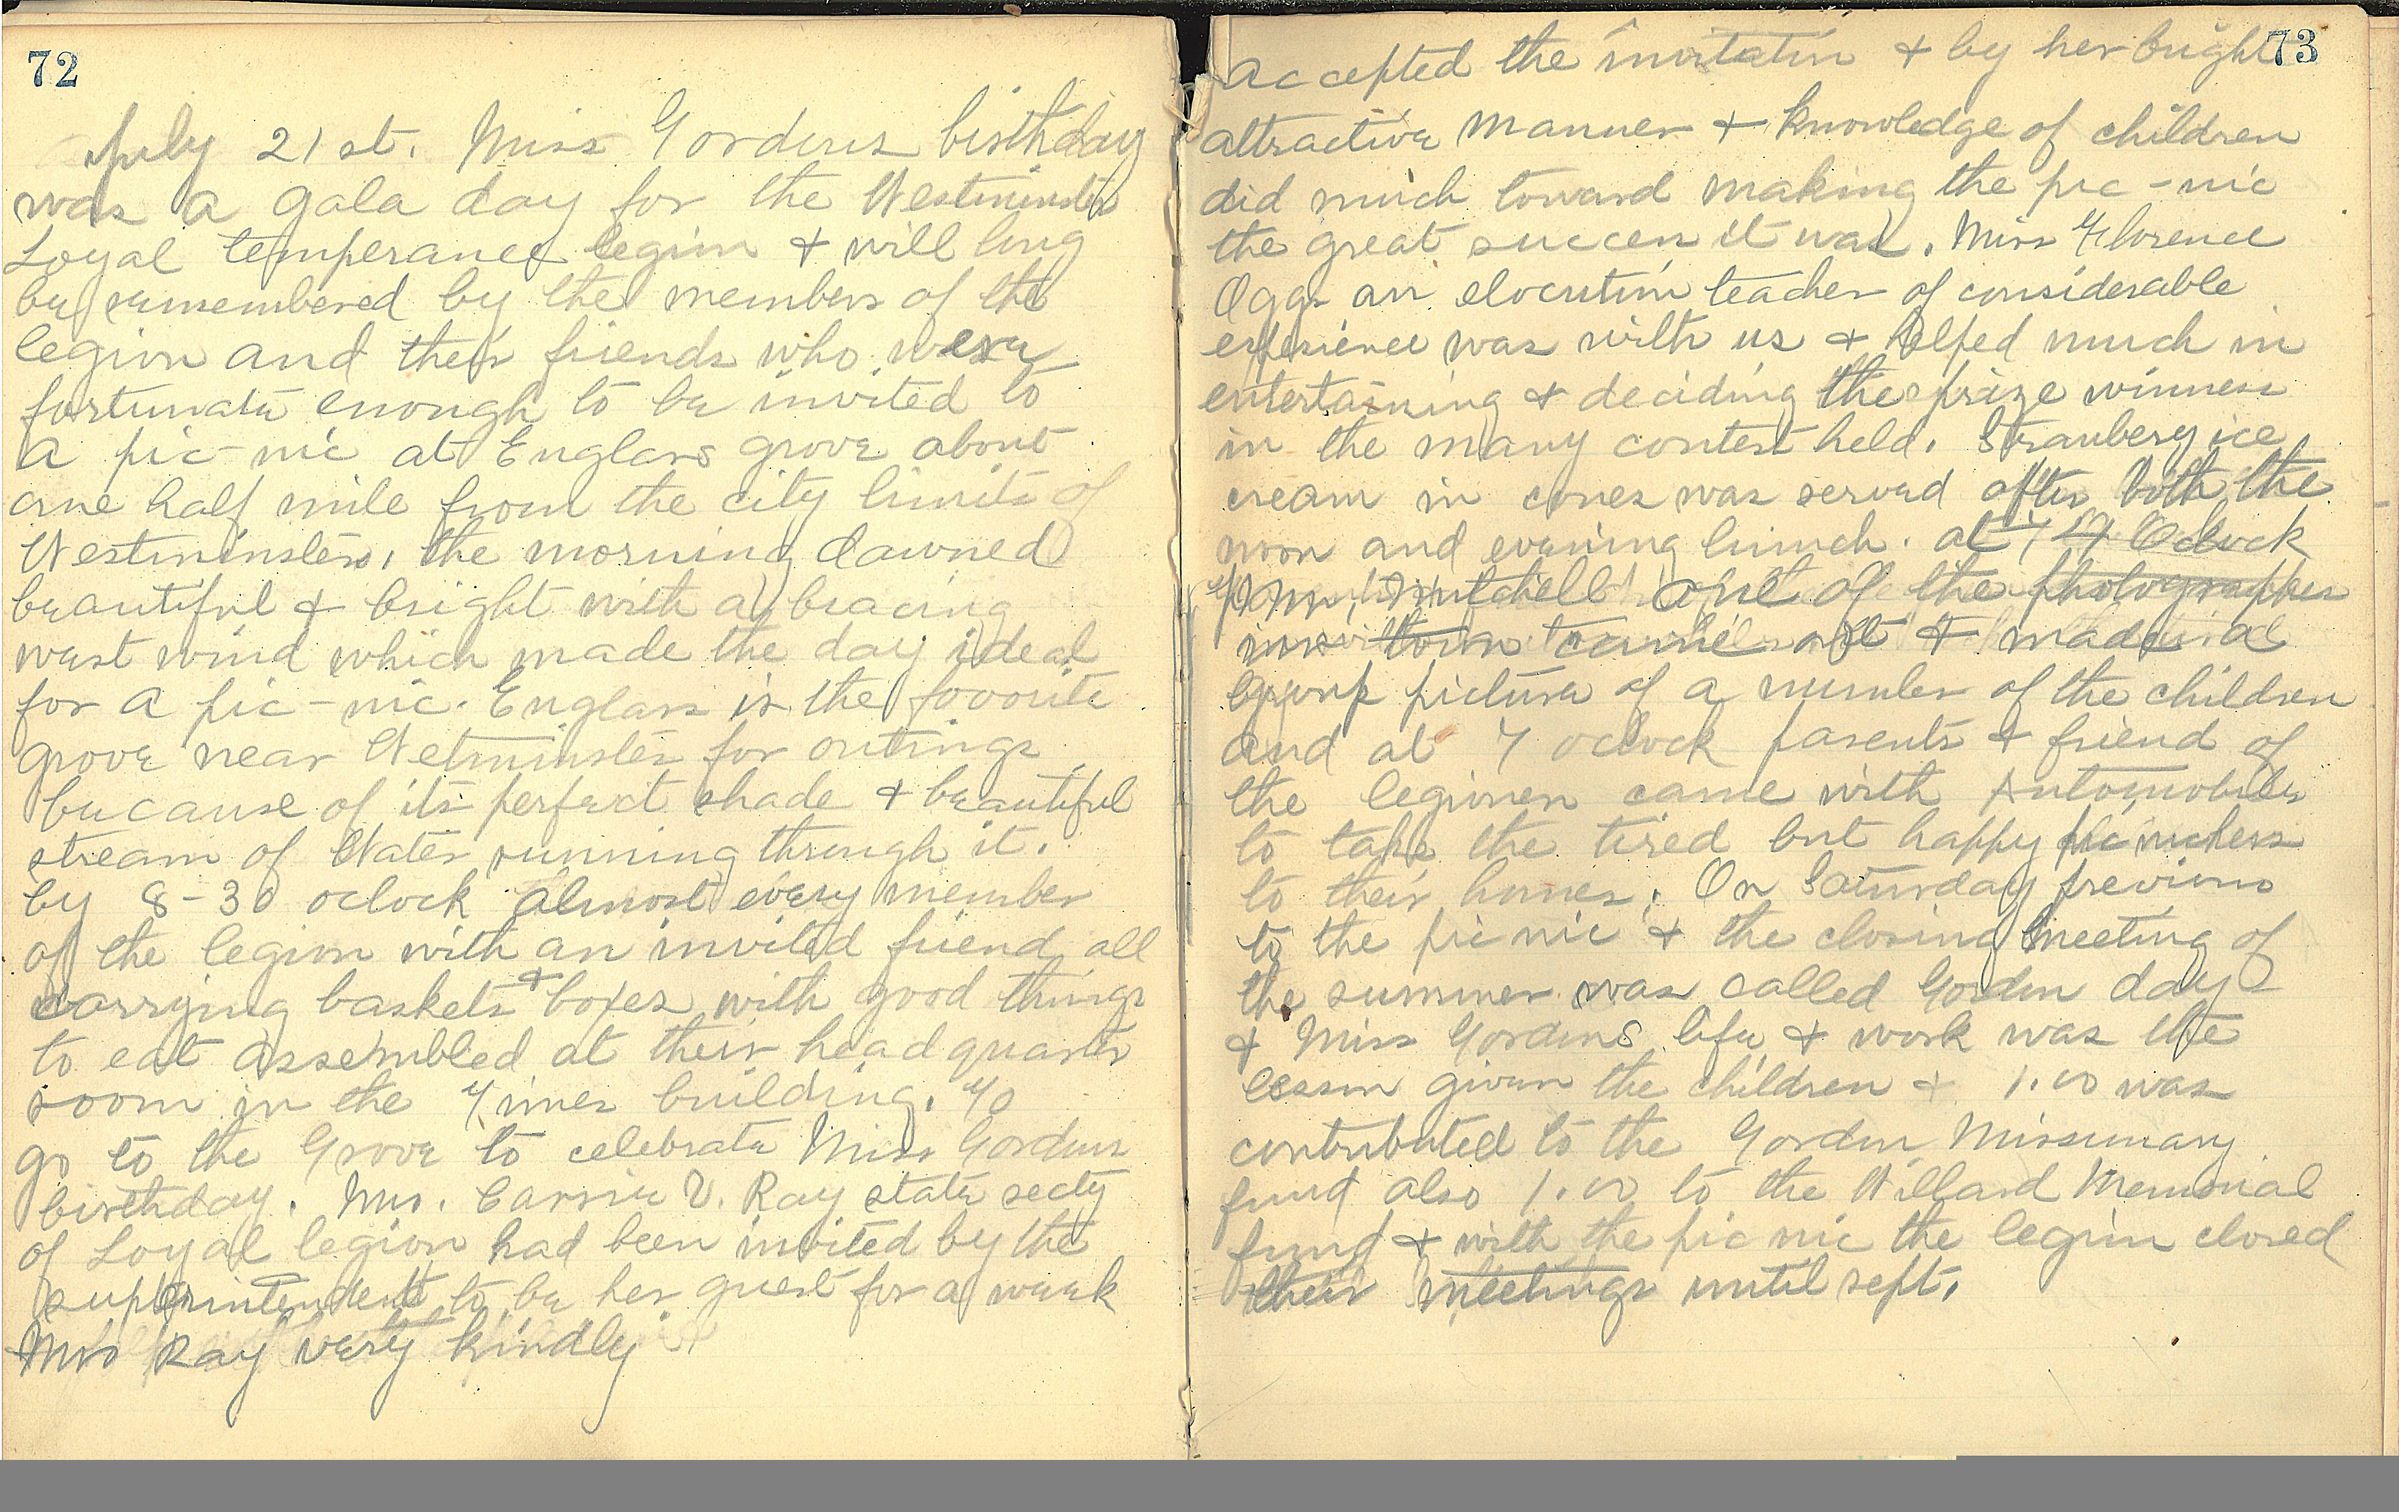 72
July 21st. Miss Gordons birthday
was a gala day for the Westminster
Loyal temperance legion & will long
be remembered by the members of the
legion and their friends who were
fortunate enough to be invited to
a pic-nic at Englars grove about
one half mile from the city limits of
Westminster, the morning dawned
beautiful & bright with a bracing
west wind which made the day ideal
for a pic-nic. Englars is the favorite
grove near Wetminster for outings
because of its perfect shade & beautiful
stream of Water running through it.
by 8-30 oclock almost every member
of the legion with an invited friend all
carrying baskets & boxes with good things
to eat assembled at their head quarters
room in the Times building. To
go to the Grove to celebrate Miss Gordons
birthday. Mrs. Carrie V. Ray state secty
of Loyal legion had been invited by the
superintendent to be her guest for a week
Mrs Ray very kindly
73
accepted the invitation & by her bright
attractive manner & knowledge of children
did much toward making the pic-nic
the great success it was. Miss Florence
Oggs an elocution teacher of considerable
experience was with us & helped much in
entertaining & deciding the prize winners
in the many contest held. Strawbery ice
cream in cones was served after both the
noon and evening lunch. at Oclock
Mr. Mitchell one of the photographer
in town came out & made a
group picture of a number of the children
and at 7 oclock parents & friend of
the legioners came with Automobiles
to take the tired but happy picnickers
to their homes. On Saturday previous
to the picnic & the closing meeting of
the summer was called Gordon day
& Miss Gordons life & work was the
lesson given the children & 1.00 was
contributed to the Gordon Missionary
fund also 1.00 to the Willard Memorial
fund & with the picnic the legion closed
their meetings until sept.